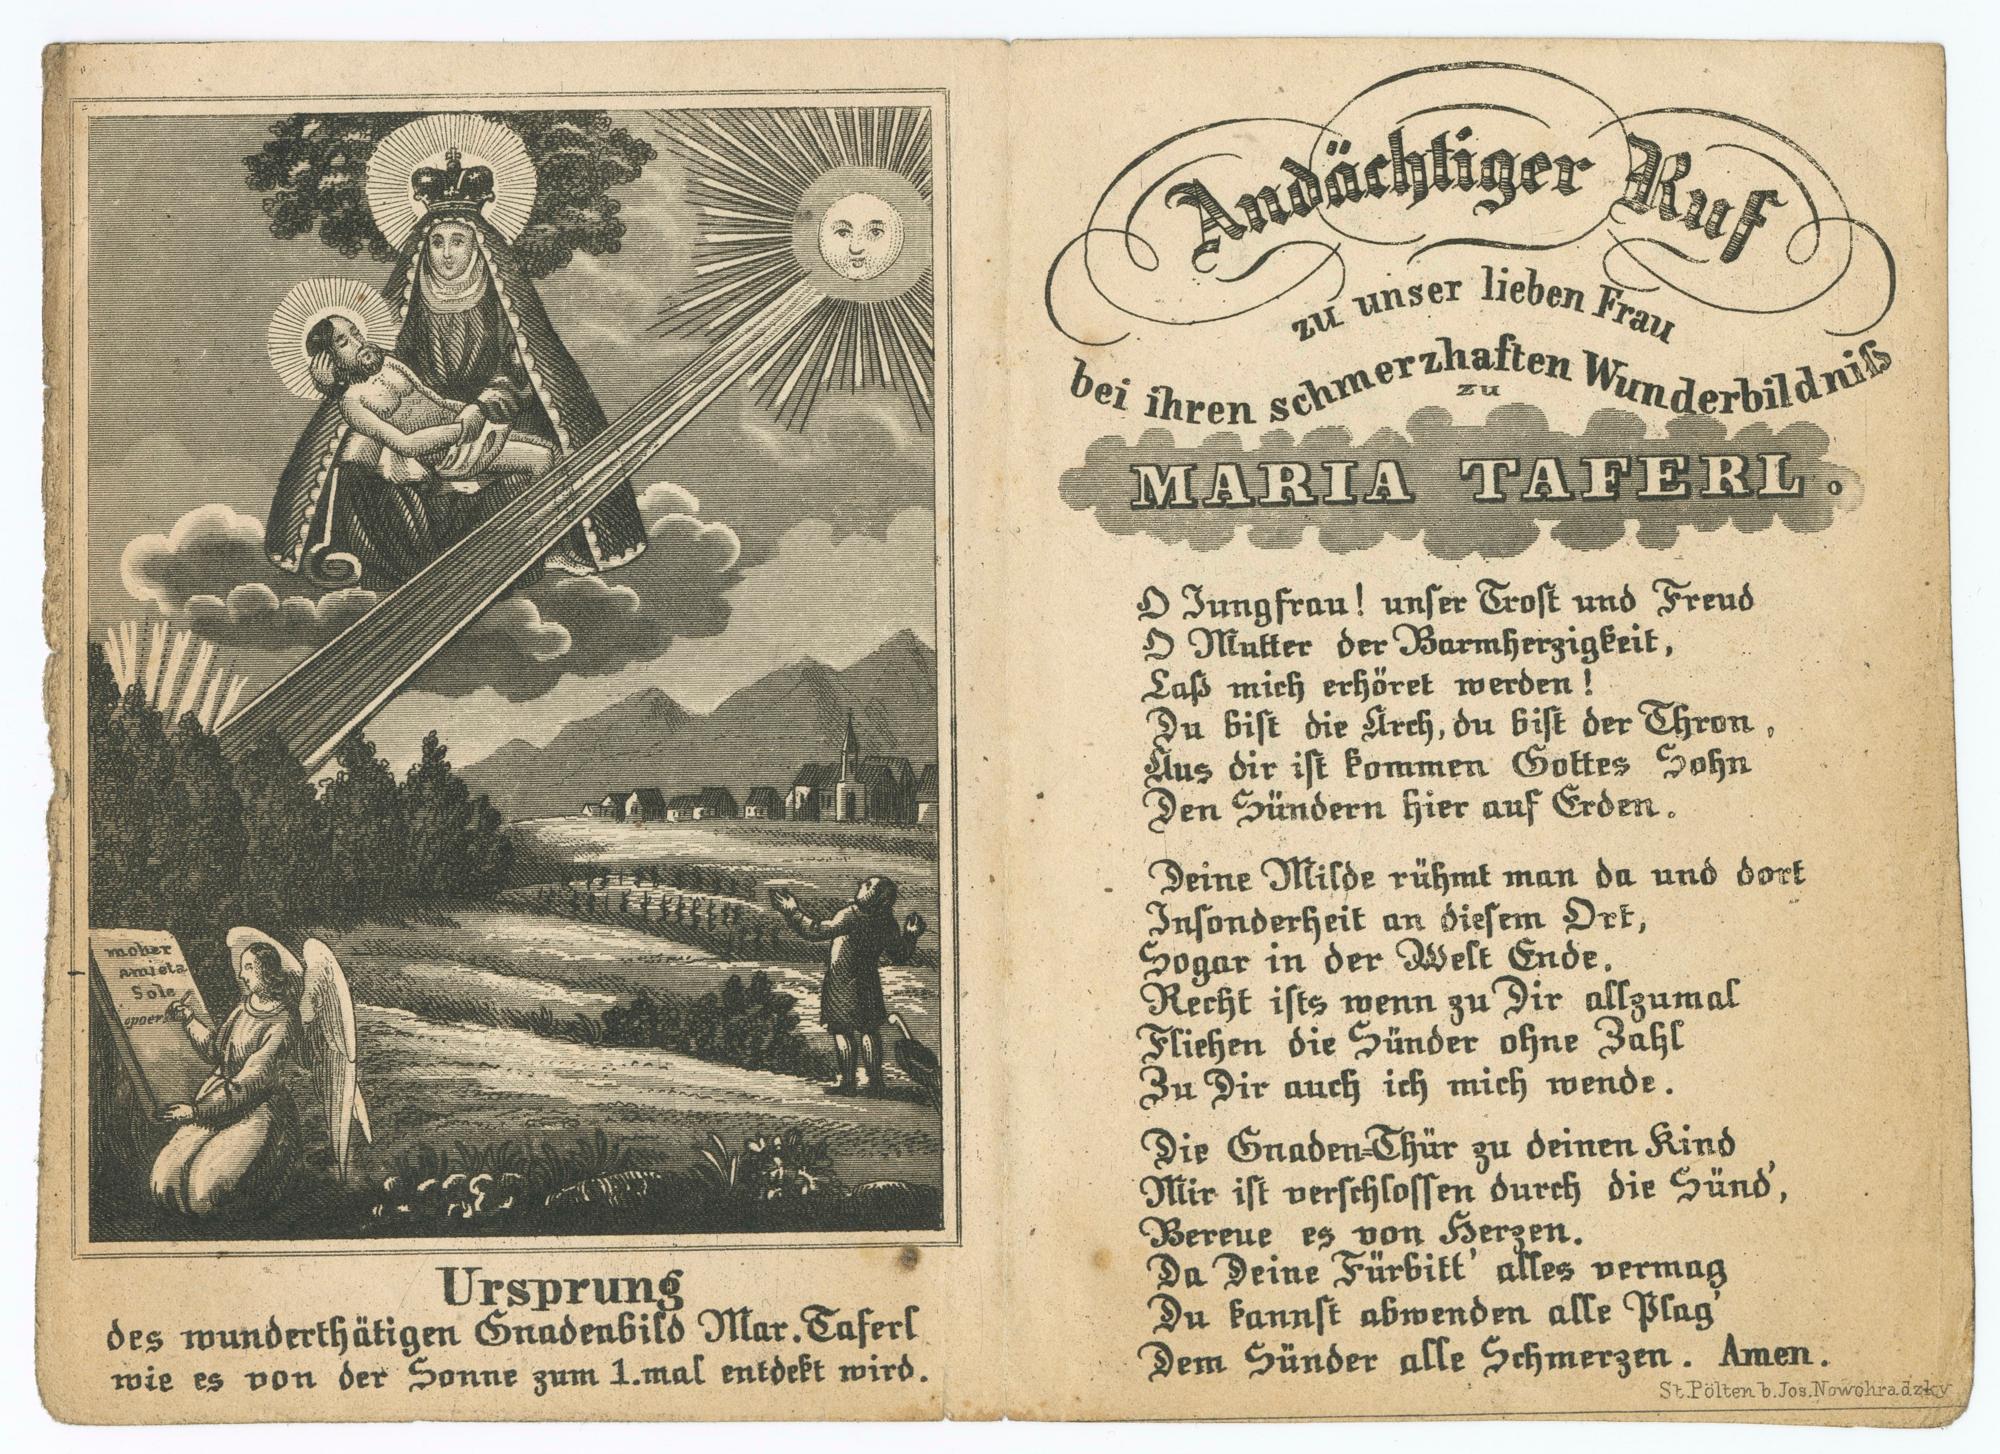 moher
amicta
Sole
Ursprung
des wunderthätigen Gnadenbild Mar. Taferl
wie es von der Sonne zum 1. mal entdekt wird.
Andächtiger Ruf
zu unser lieben Frau
bei ihren schmerzhaften Wunderbildniß
zu
MARIA TAFERL.
O Jungfrau! unser Trost und Freud
O Mutter der Barmherzigkeit,
Laß mich erhöret werden!
Du bist die Arch, du bist der Thron,
Aus dir ist kommen Gottes Sohn
Den Sündern hier auf Erden.
Deine Milde rühmt man da und dort
Insonderheit an diesem Ort,
Sogar in der Welt Ende.
Recht ists wenn zu Dir allzumal
Fliehen die Sünder ohne Zahl
Zu Dir auch ich mich wende.
Die Gnaden=Thür zu deinen Kind
Mir ist verschlossen durch die Sünd',
Bereue es von Herzen.
Da Deine Fürbitt' alles vermag
Du kannst abwenden alle Plag'
Dem Sünder alle Schmerzen. Amen.
St. Pölten b. Jos. Nowohradzky